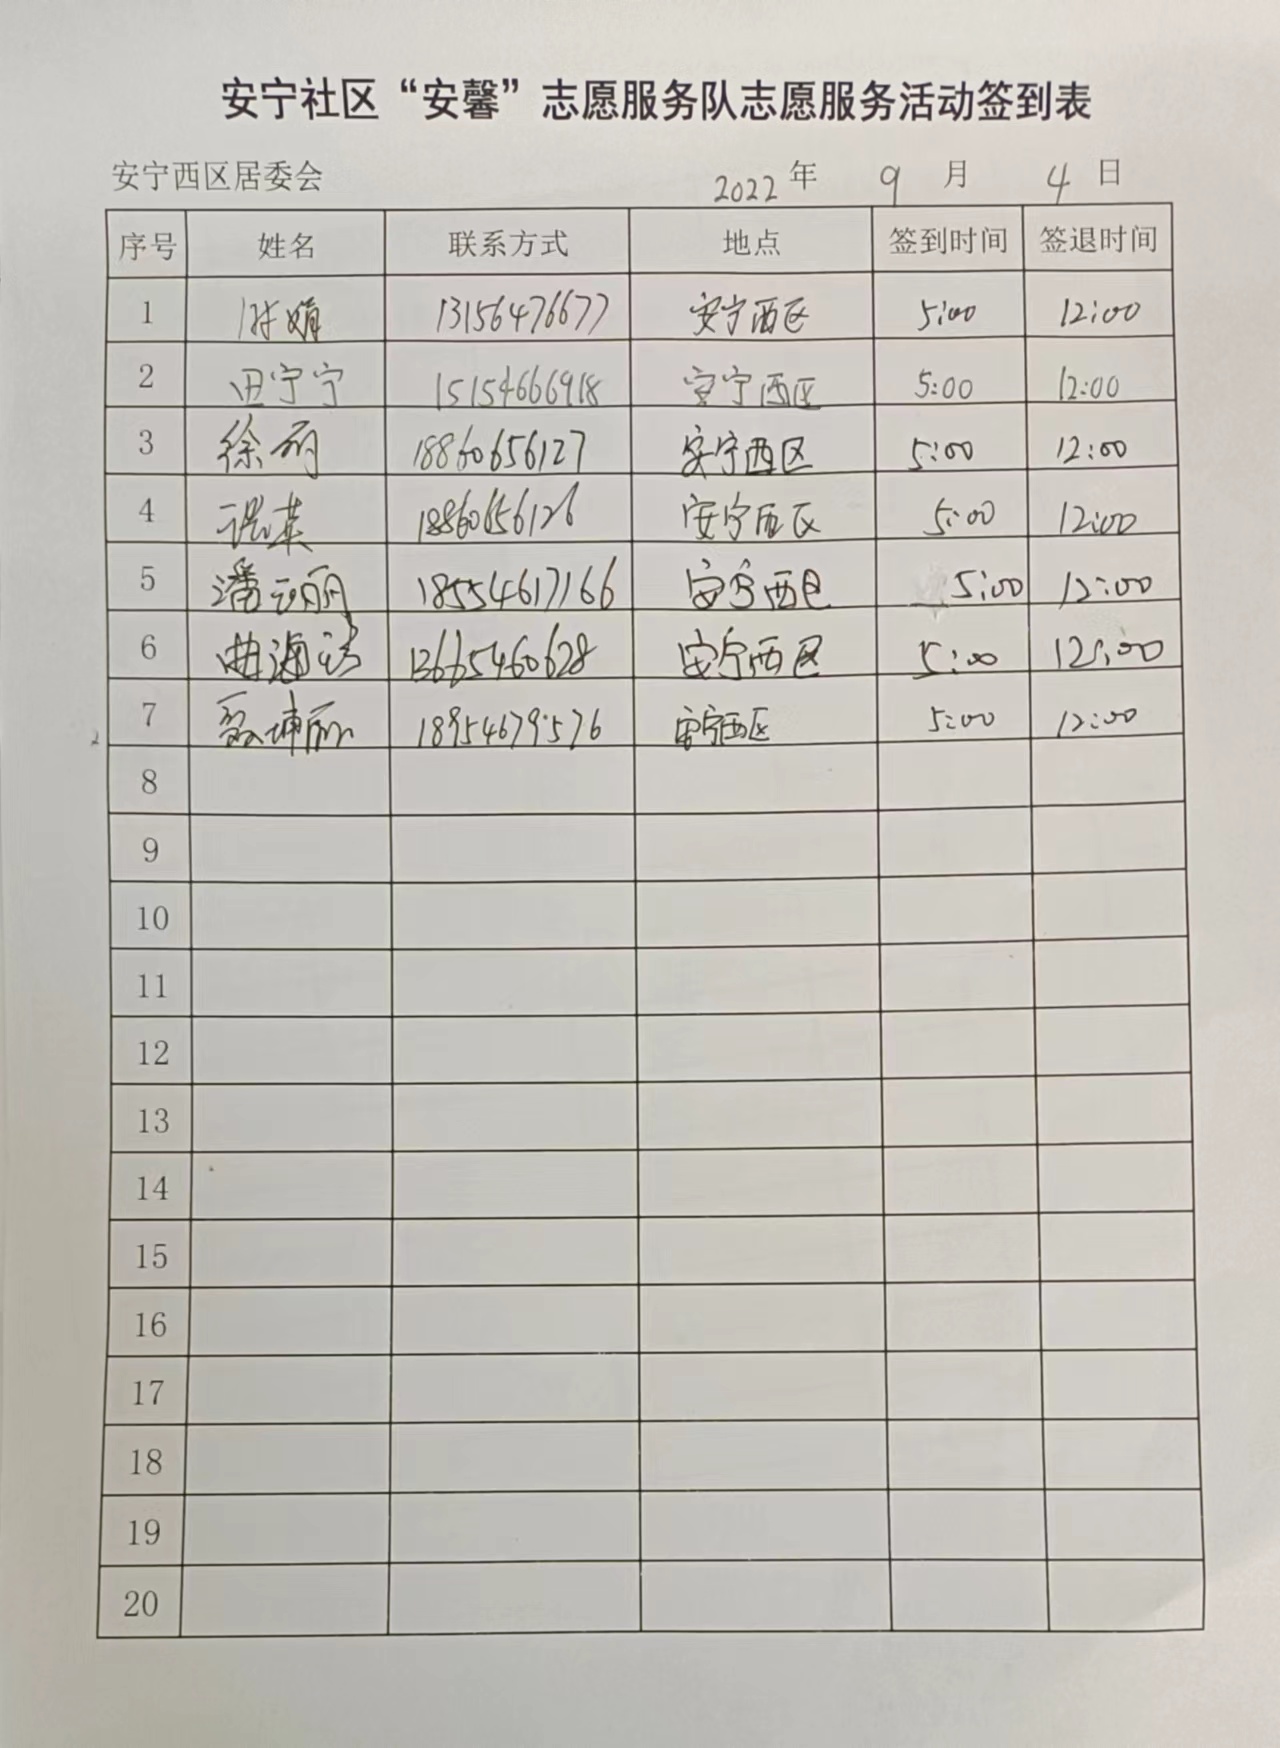 安宁社区“安馨”志愿服务队志愿服务活动签到表
安宁西区居委会 2022 年 9 月 4 日
序号 姓名 联系方式 地点 签到时间 签退时间
1 娟 13156476677 安宁西区 5:00 12:00
2 田宁宁 15154666918 安宁西区 5:00 12:00
3 徐丽 18860656127 安宁西区 5:00 12:00
4 英 18860656126 安宁西区 5:00 12:00
5 潘云丽 18554617166 安宁西区 5:00 12:00
6 曲海 13665460628 安宁西区 5:00 12:00
7 坤丽 18954679576 安宁西区 5:00 12:00
8
9
10
11
12
13
14
15
16
17
18
19
20